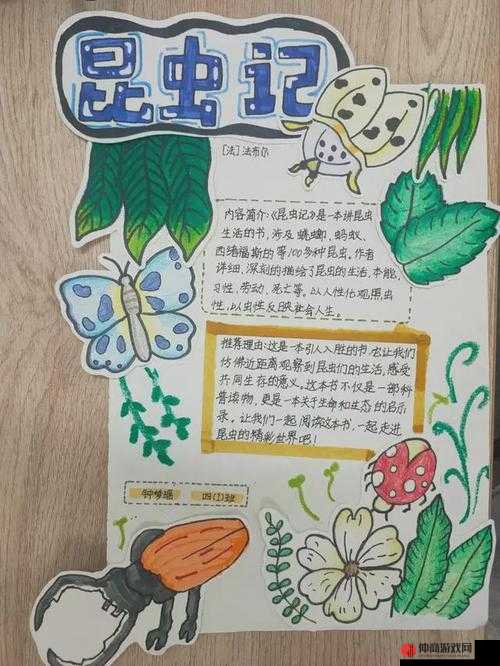 昆虫记
[法]法布尔
内容简介:《昆虫记》是一本讲昆虫
生活的书,涉及蜣螂、蚂蚁、
西绪福斯的等100多种昆虫。作者
详细、深刻的描绘了昆虫的生活、本能、
习性、劳动、死亡等。以人性化观照虫
性,以虫性反映社会人生。
推荐理由:这是一本引人入胜的书,它让我们
仿佛近距离观察到昆虫们的生活,感受
共同生存的意义。这本书不仅是一部科
普读物,更是一本关于生命和生态的启示
录。让我们一起阅读这本书,一起走进
昆虫的精彩世界吧!
钟梦瑶 四(1)班
仲尚游戏网